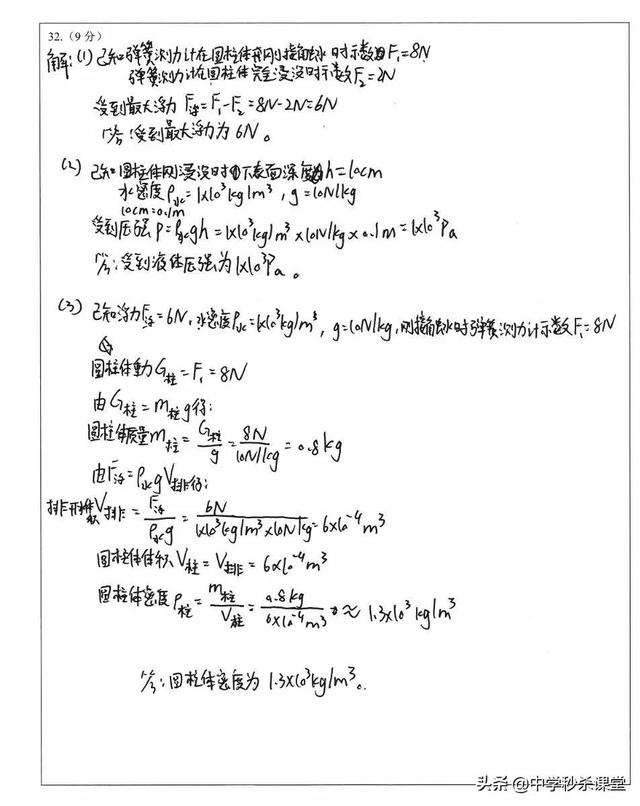 32.(9分)
解:(1)已知弹簧测力计在圆柱体刚接触水时示数为F₁=8N
弹簧测力计在圆柱体完全浸没时示数F₂=2N
受到最大浮力 F浮=F₁-F₂=8N-2N=6N
答:受到最大浮力为6N。
(2) 已知圆柱体刚浸没时下表面深度为h=10cm
水密度ρ水=1×10³kg/m³, g=10N/kg
10cm=0.1m
受到压强P=ρ水gh=1×10³kg/m³×10N/kg×0.1m=1×10³Pa
答:受到液体压强为1×10³Pa。
(3) 已知浮力F浮=6N,水密度ρ水=1×10³kg/m³, g=10N/kg,刚接触水时弹簧测力计示数F₁=8N
圆柱体重力G柱=F₁=8N
由G柱=m柱g得:
圆柱体质量m柱=G柱/g=8N/10N/kg=0.8kg
由F浮=ρ水gV排得:
排开体积V排=F浮/ρ水g=6N/1×10³kg/m³×10N/kg=6×10⁻⁴m³
圆柱体体积V柱=V排=6×10⁻⁴m³
圆柱体密度ρ柱=m柱/V柱=0.8kg/6×10⁻⁴m³≈1.3×10³kg/m³
答:圆柱体密度为1.3×10³kg/m³。
头条@中学秒杀课堂